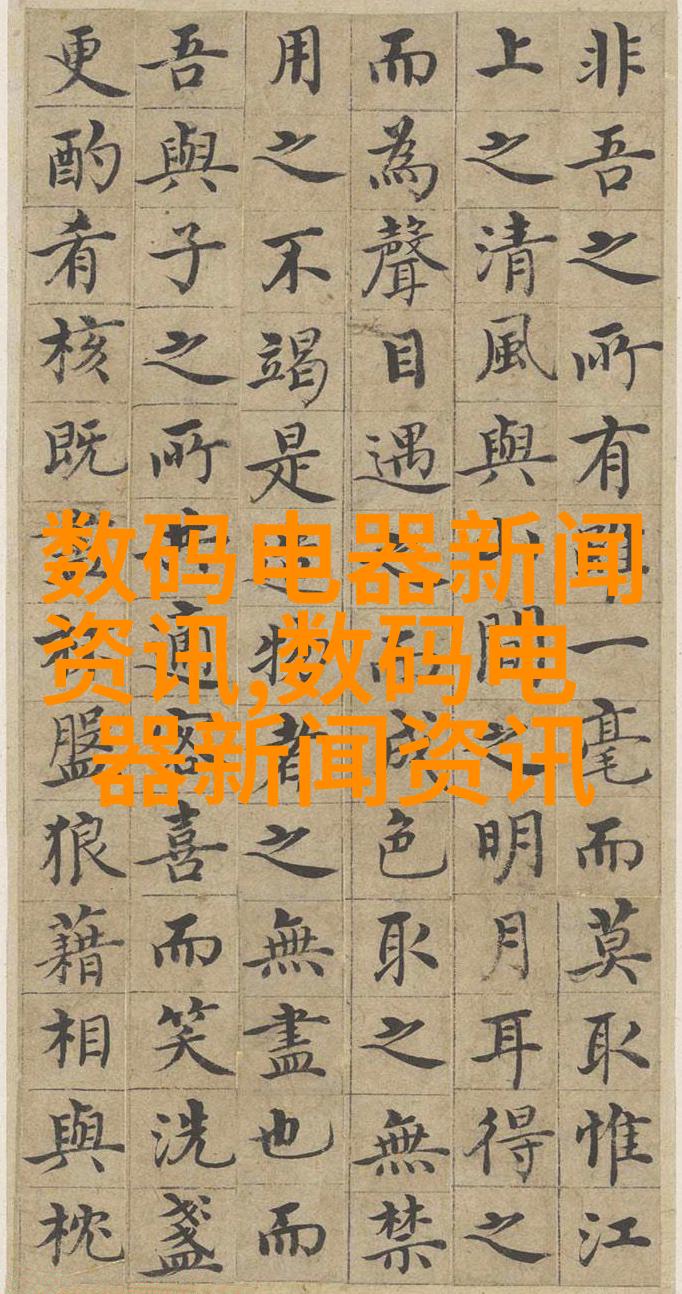 非吾之所有雖一毫而莫取惟江
上之清風與山間之明月耳得之
而為聲目遇之而成色取之無禁
用之不竭是造物者之無盡也而
吾與子之所適客喜而笑洗盞
更酌肴核既盤狼藉相與枕
数码电器新闻
资讯,数码电
器新闻资讯